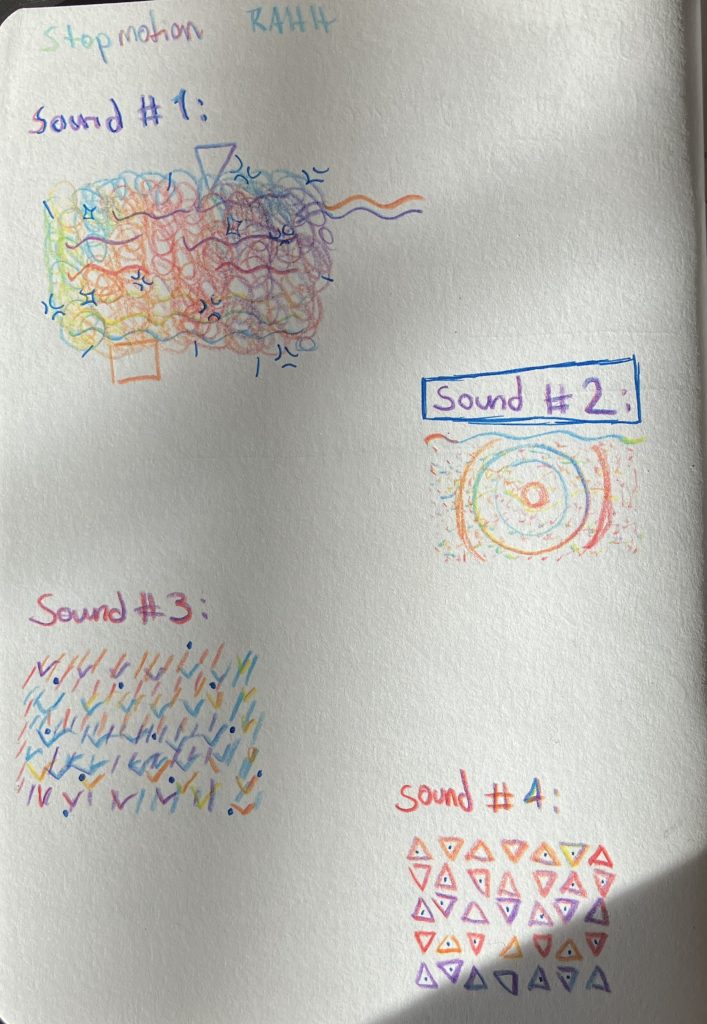 Stopmotion RAHH
Sound #1:
Sound #2:
Sound #3:
Sound #4: